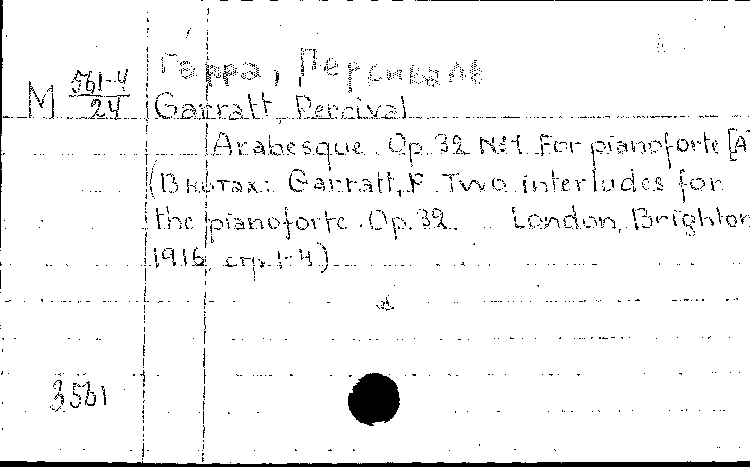 Гарра, Персиваль
М 561-4/24 Garratt, Percival
Arabesque. Op. 32 №1. For pianoforte [A
(В нотах: Garratt, P. Two interludes for
the pianoforte. Op. 32. London, Brighton
1916, стр. 1-4)
3561